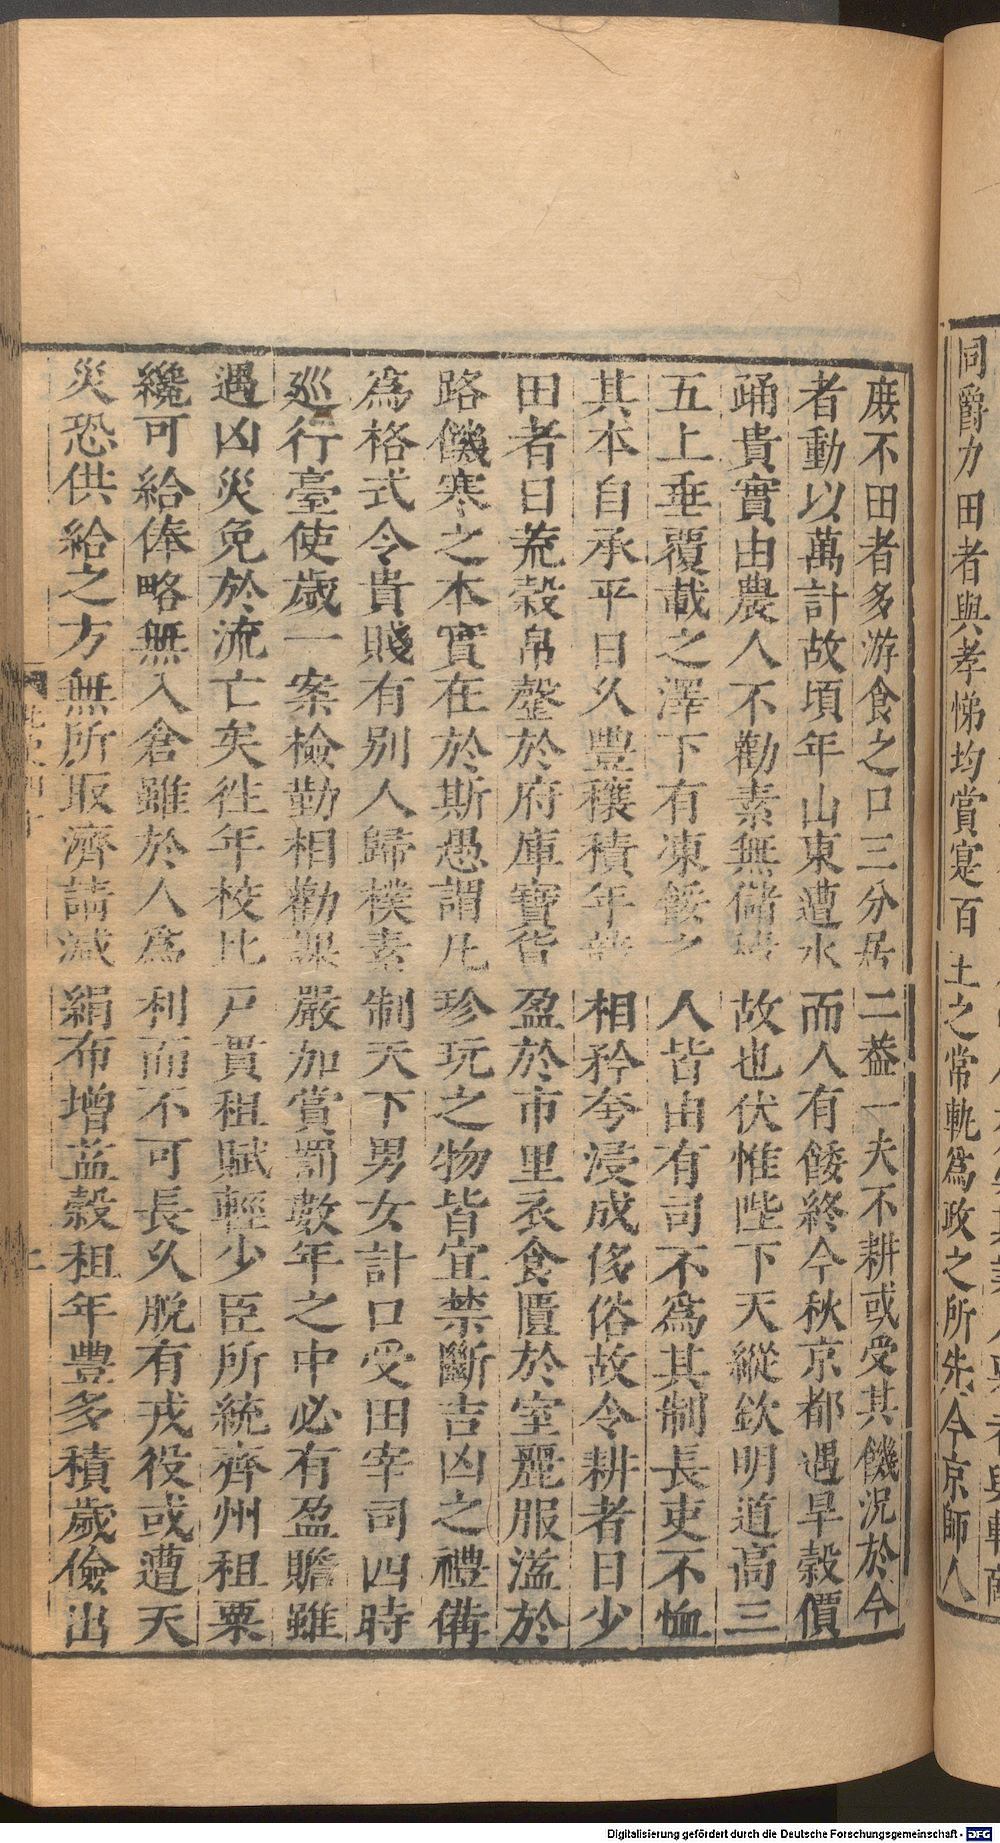 同爵力田者與孝悌均賞寔百王之常軌爲政之所先今京師人
庶不田者多游食之口三分居二蓋一夫不耕或受其饑況於今
者動以萬計故頃年山東遭水而人有餧終今秋京都遇旱穀價
踊貴實由農人不勸素無儲積故也伏惟陛下天縱欽明道高三
五上垂覆載之澤下有凍餒之人皆由有司不爲其制長吏不恤
其本自承平日久豊穰積年競相矜夸浸成侈俗故令耕者日少
田者日荒穀帛罄於府庫寶貨盈於市里衣食匱於室麗服溢於
路饑寒之本實在於斯愚謂凡珍玩之物皆宜禁斷吉凶之禮備
爲格式令貴賤有別人歸樸素制天下男女計口受田宰司四時
巡行臺使歲一案檢勤相勸課嚴加賞罰數年之中必有盈贍雖
遇凶災免於流亡矣徃年校比戸貫租賦輕少臣所統齊州租粟
纔可給俸略無入倉雖於人爲利而不可長久脫有戎役或遭天
災恐供給之方無所取濟請減絹布增益穀租年豊多積歲儉出
Digitalisierung gefördert durch die Deutsche Forschungsgemeinschaft - DFG